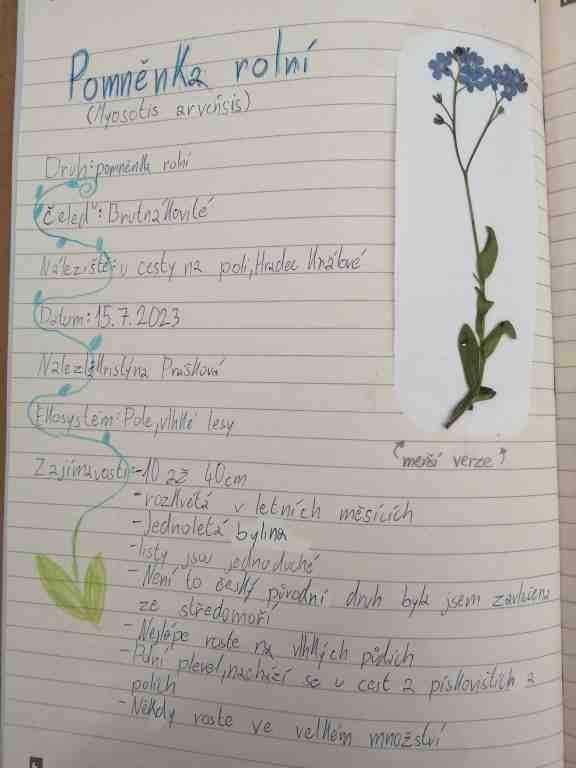 Pomněnka rolní
(Myosotis arvensis)
Druh: pomněnka rolní
Čeleď: Brutnákovité
Náleziště: u cesty na poli, Hradec Králové
Datum: 15.7.2023
Nalezl: Kristýna Prašková
Ekosystém: Pole, vlhké lesy
(menší verze)
Zajímavosti: -10 až 40cm
-rozkvétá v letních měsících
-Jednoletá bylina
-listy jsou jednoduché
-Není to český původní druh byla jsem zavlečena
ze středomoří
-Nejlépe roste na vlhkých půdách
-Polní plevel, nachází se u cest a pískovištích a
polích
-Někdy roste ve velkém množství